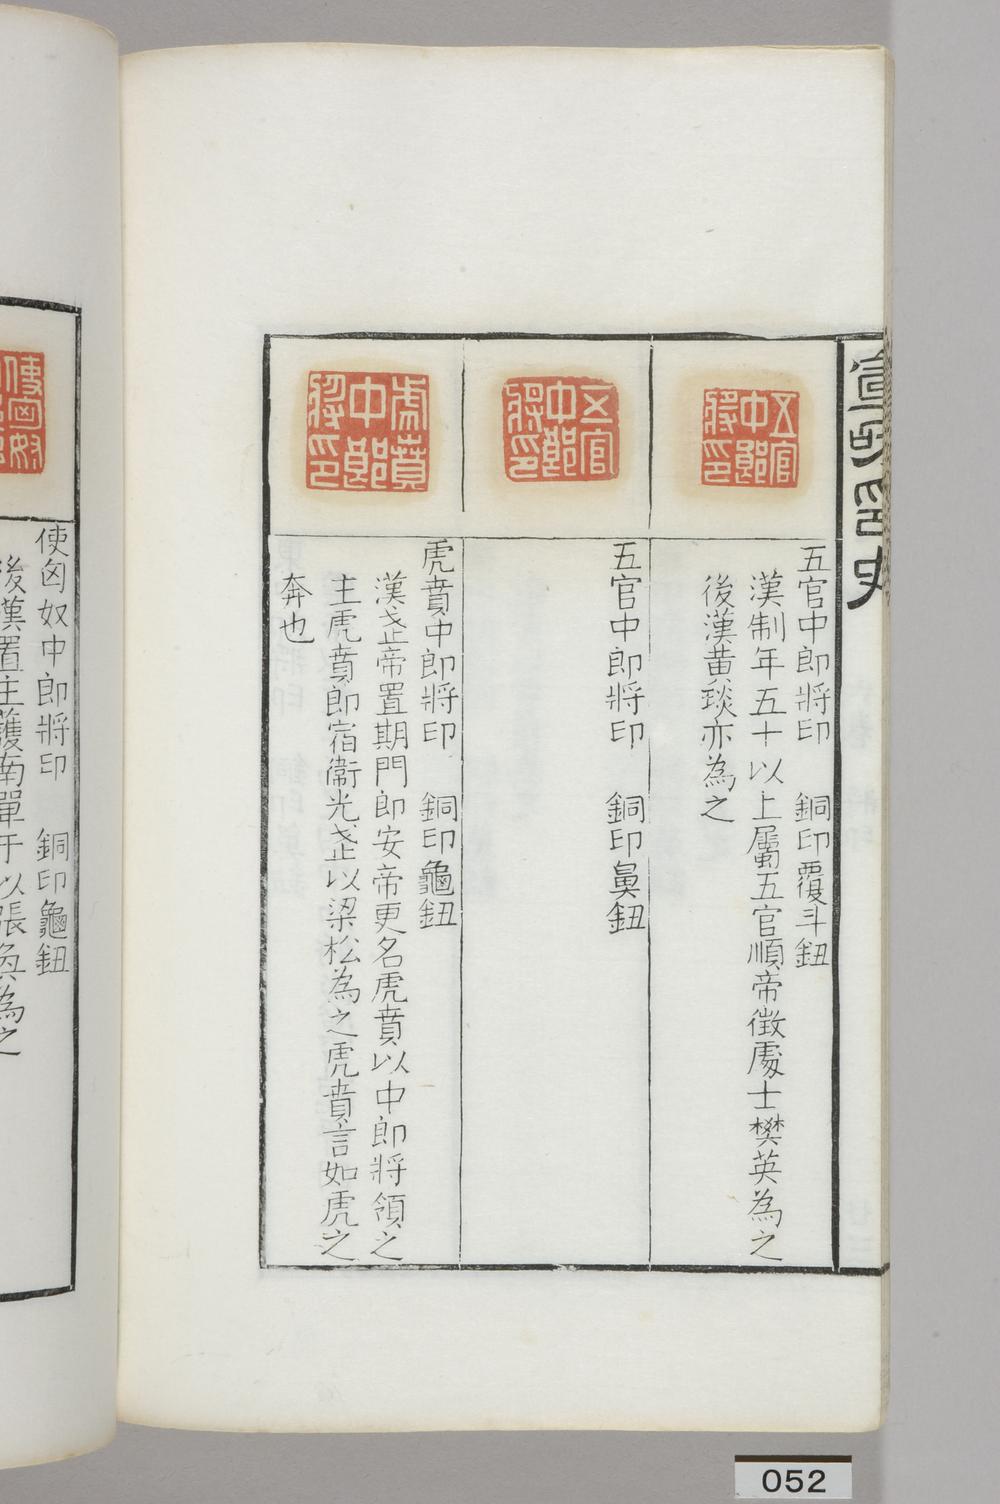 宣和印史
五官
中郎
將印
五官中郎將印　銅印覆斗鈕
漢制年五十以上屬五官順帝徵處士樊英為之
後漢黄琰亦為之
五官
中郎
將印
五官中郎將印　銅印鼻鈕
虎賁
中郎
將印
虎賁中郎將印　銅印龜鈕
漢武帝置期門郎安帝更名虎賁以中郎將領之
主虎賁郎宿衛光武以梁松為之虎賁言如虎之
奔也
使匈奴
使匈奴中郎將印　銅印龜鈕
後漢置主護南單于以張奐為之
052